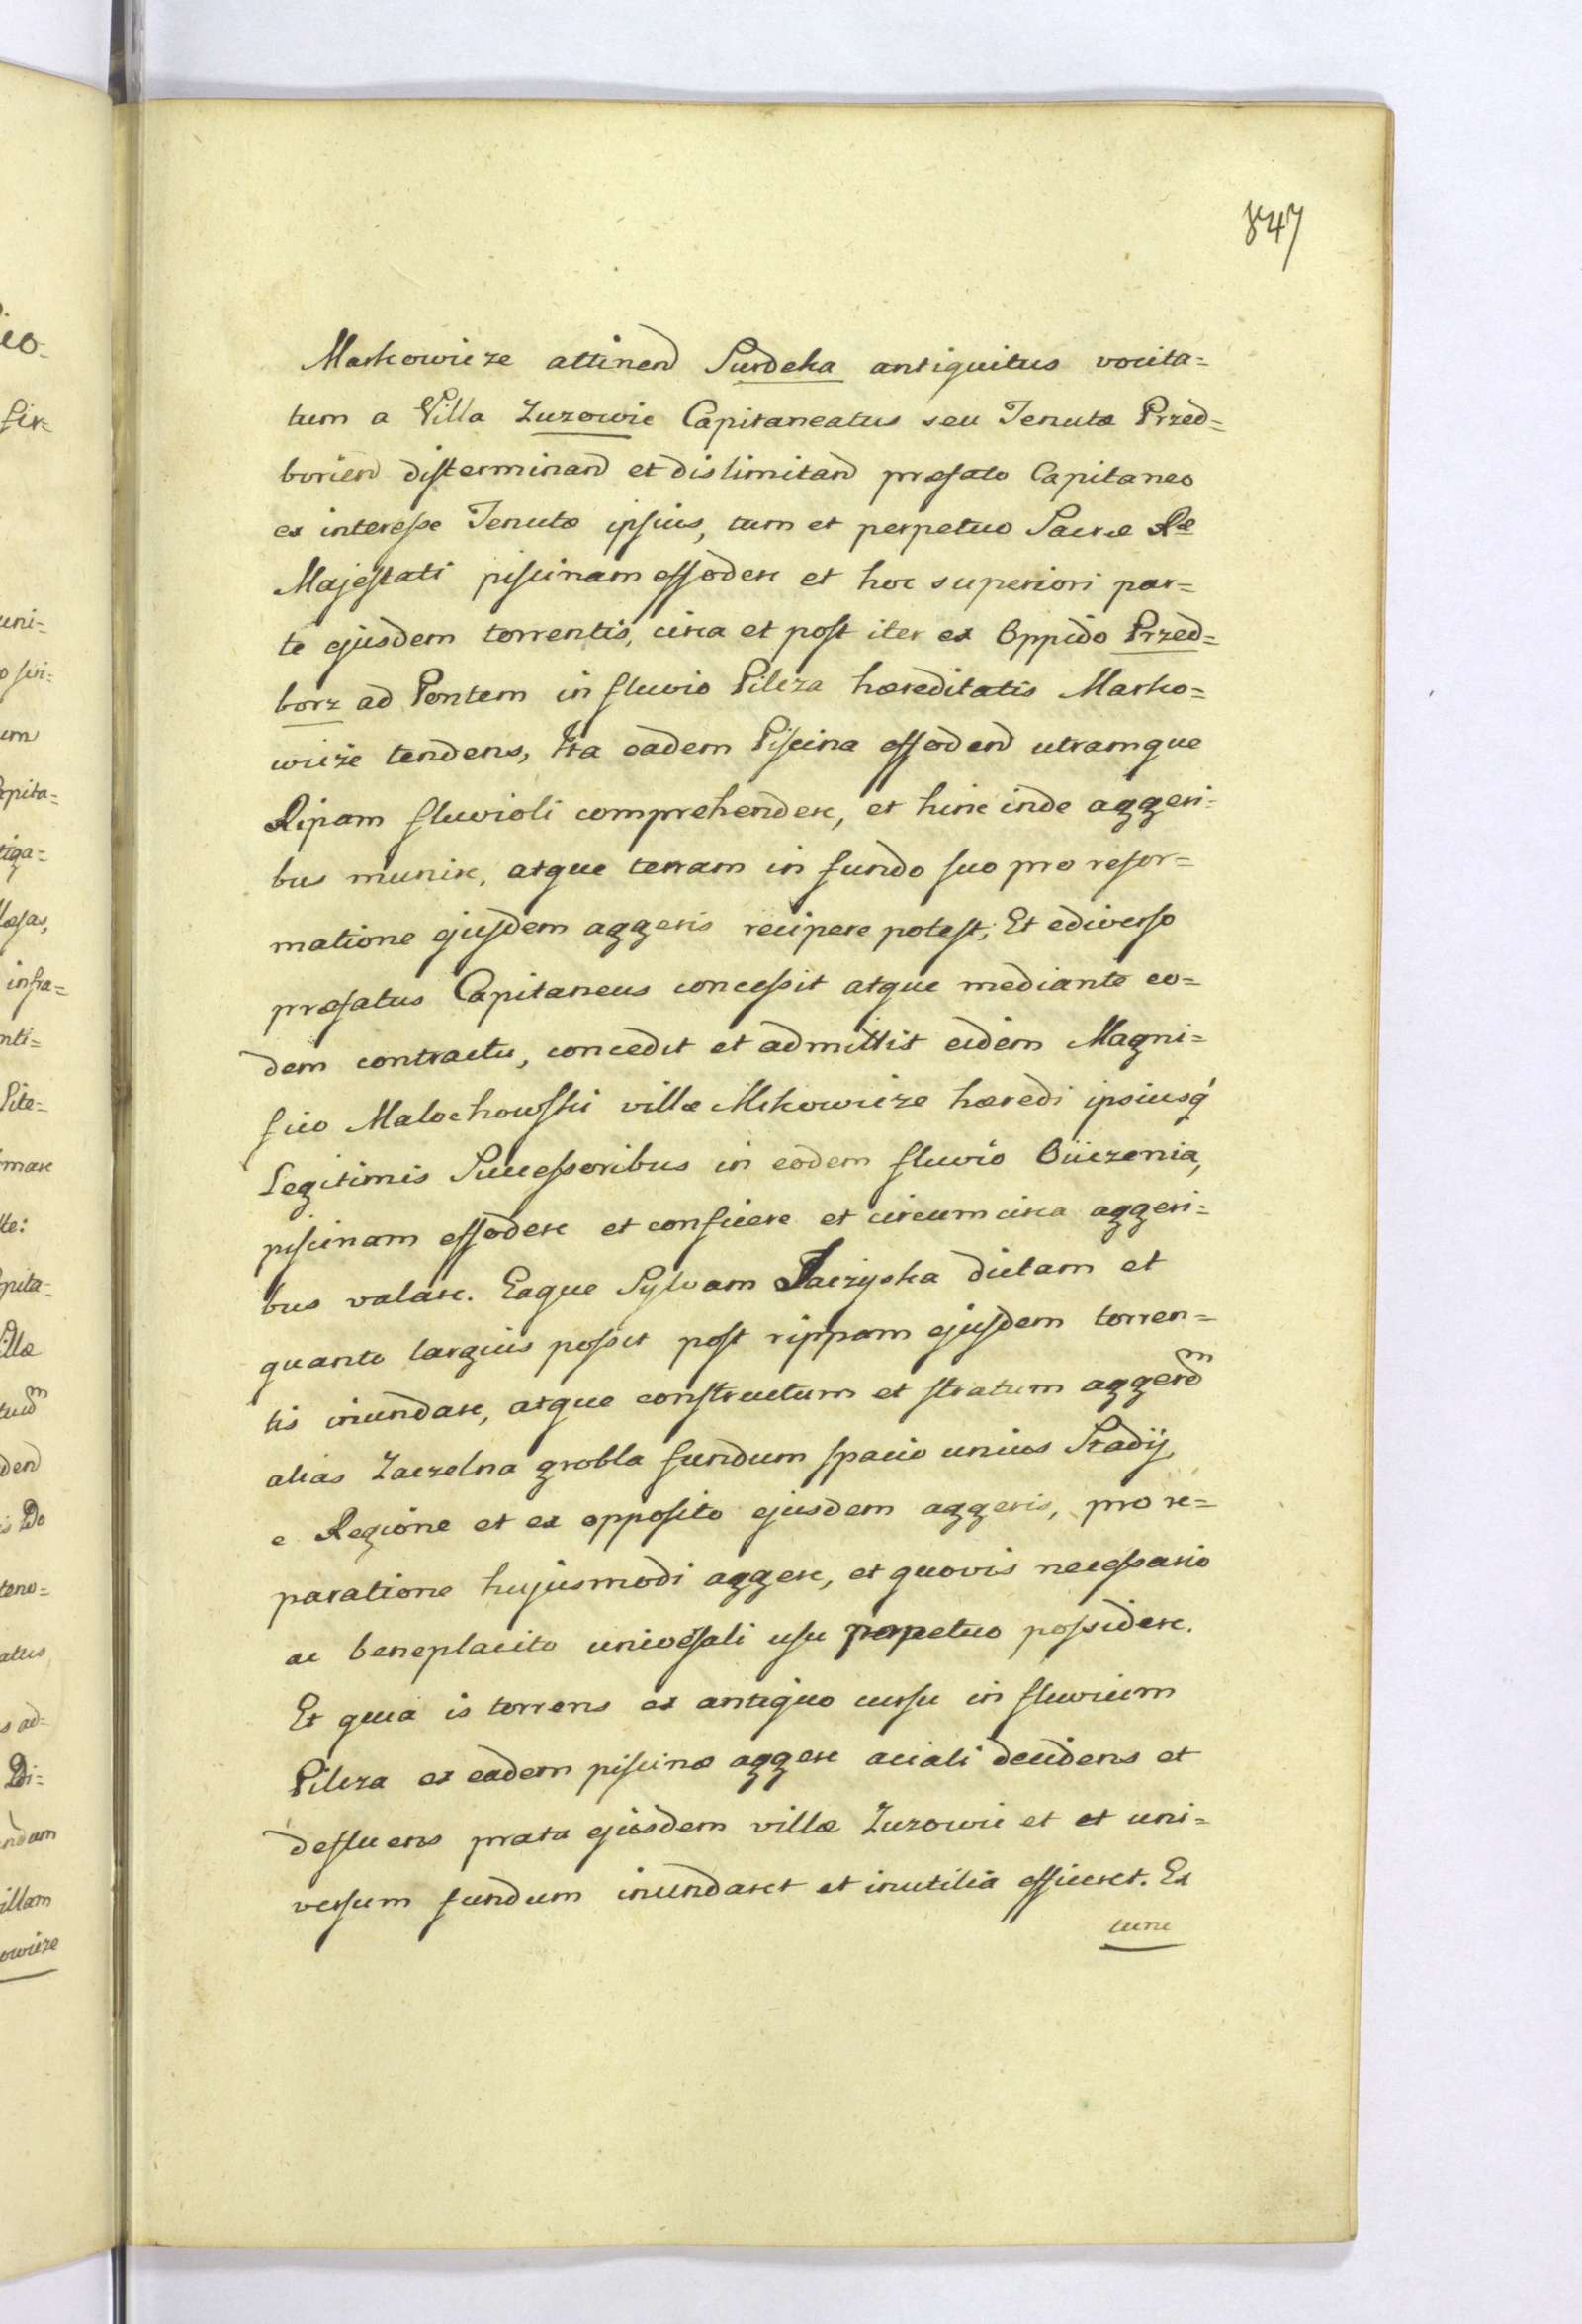 847
Markowicze attinend Surdeka antiquitus vocita=
tum a Villa Zuzowie Capitaneatus seu Tenutæ Przed=
boriend disterminand et dislimitand præfato Capitaneo
ex interesse Tenutæ ipsius, tum et perpetuo Sacræ Ræ
Majestati piscinam effodere et hoc superiori par=
te ejusdem torrentis, circa et post iter ex Oppido Przed=
borz ad Pontem in fluvio Pilcza hæreditatis Marko=
wicze tendens, Ita eadem Piscina effodend utramque
Ripam fluvioli comprehendere, et hinc inde aggeri=
bus munire, atque terram in fundo suo pro refor=
matione ejusdem aggeris recipere potest; Et ediverso
præfatus Capitaneus concessit atque mediante eo=
dem contractu, concedit et admittit eidem Magni=
fico Malochowski villæ Mkowicze hæredi ipsiusq'
Legitimis Successoribus in eodem fluvio Büczenia,
piscinam effodere et conficere et circumcirca aggeri=
bus valare. Eaque Sylvam Jaczyska dictam et
quanto largius posset post rippam ejusdem torren=
tis inundare, atque constructum et stratum aggerdm
alias Zaczelna grobla fundum spacio unius Stadij,
e Regione et ex opposito ejusdem aggeris, pro re=
paratione hujusmodi aggere, et quovis necessario
ac beneplacito univesali usu perpetuo possidere.
Et quia is torrens ex antiquo cursu in fluvium
Pilcza ex eadem piscinæ aggere aciali decidens et
defluens prata ejusdem villæ Zuzowie et et uni=
versum fundum inundaret et inutilia efficeret. Ex
tunc